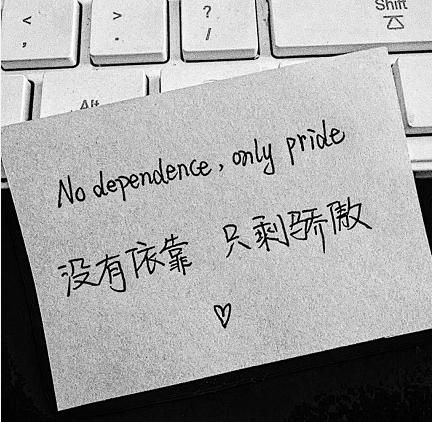 < >  ? Shift
, . /
Alt
No dependence, only pride
没有依靠 只剩骄傲